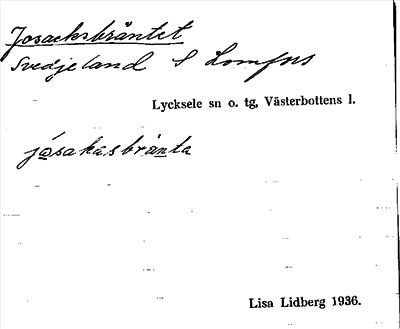 Josacksbräntet
Svedjeland S Lomfors
Lycksele sn o. tg, Västerbottens l.
jósakasbränta
Lisa Lidberg 1936.